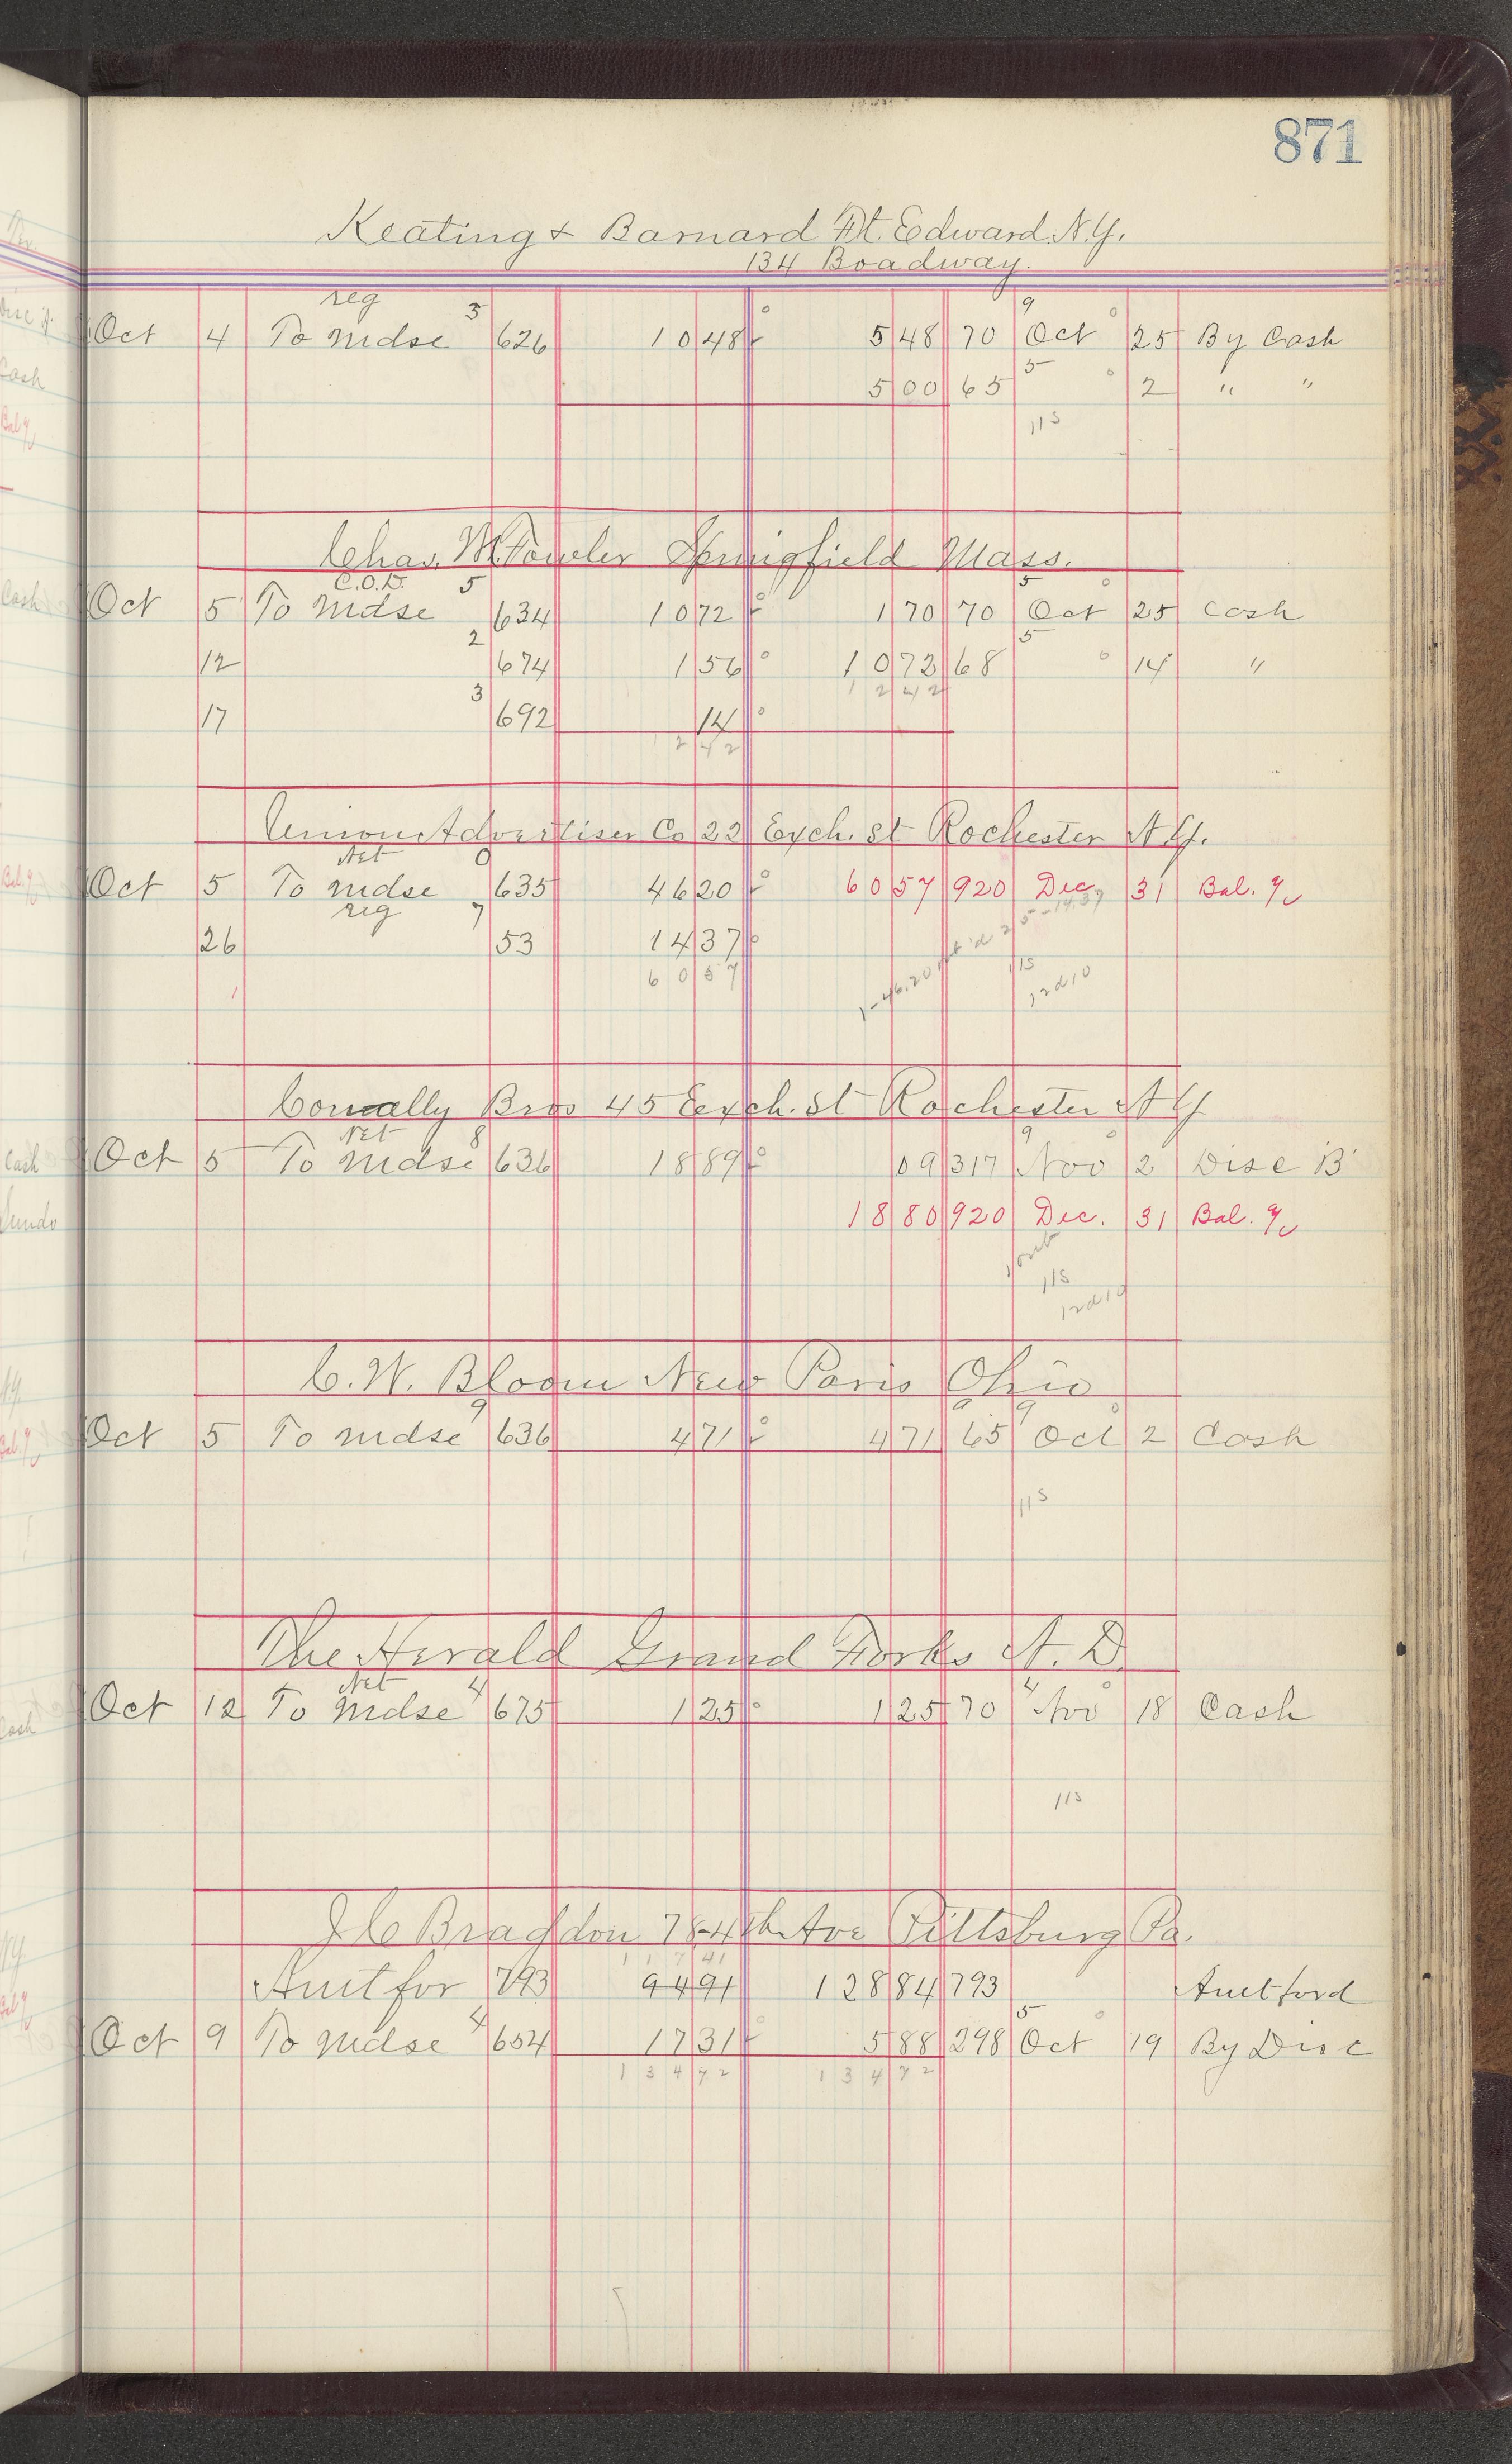 871
Keating & Barnard Ft. Edward. N.Y.
134 Boadway.
reg 3 9
Oct 4 To Mdse 626 10 48 5 48 70 Oct 25 By Cash
5
5 00 65 2 " "
115
Chas. M. Fowler Springfield Mass.
C.O.D. 5 5
Oct 5 To Mdse 634 10 72 1 70 70 Oct 25 Cash
2 5
12 674 1 56 10 72 68 14 "
12 42
3
17 692 14
2 42
Union Advertiser Co 22 Exch. St Rochester N.Y.
Net 0
Oct 5 To Mdse 635 46 20 60 57 920 Dec 31 Bal.
reg 7
26 53 14 37
60 57
115
Conally Bros 45 Exch. St Rochester N Y
Net 8 9
Oct 5 To Mdse 636 18 89 09 317 Nov 2 Disc B
18 80 920 Dec. 31 Bal.
115
C. W. Bloom New Paris Ohio
9 9 9
Oct 5 To Mdse 636 4 71 4 71 65 Oct 2 Cash
115
The Herald Grand Forks N. D.
Net 4 4
Oct 12 To Mdse 675 1 25 1 25 70 Nov 18 Cash
115
J C Bragdon 78-4th Ave Pittsburg Pa.
117 41
Amt for 793 94 91 128 84 793 Amt ford
4 5
Oct 9 To Mdse 654 17 31 5 88 298 Oct 19 By Disc
134 72 134 72